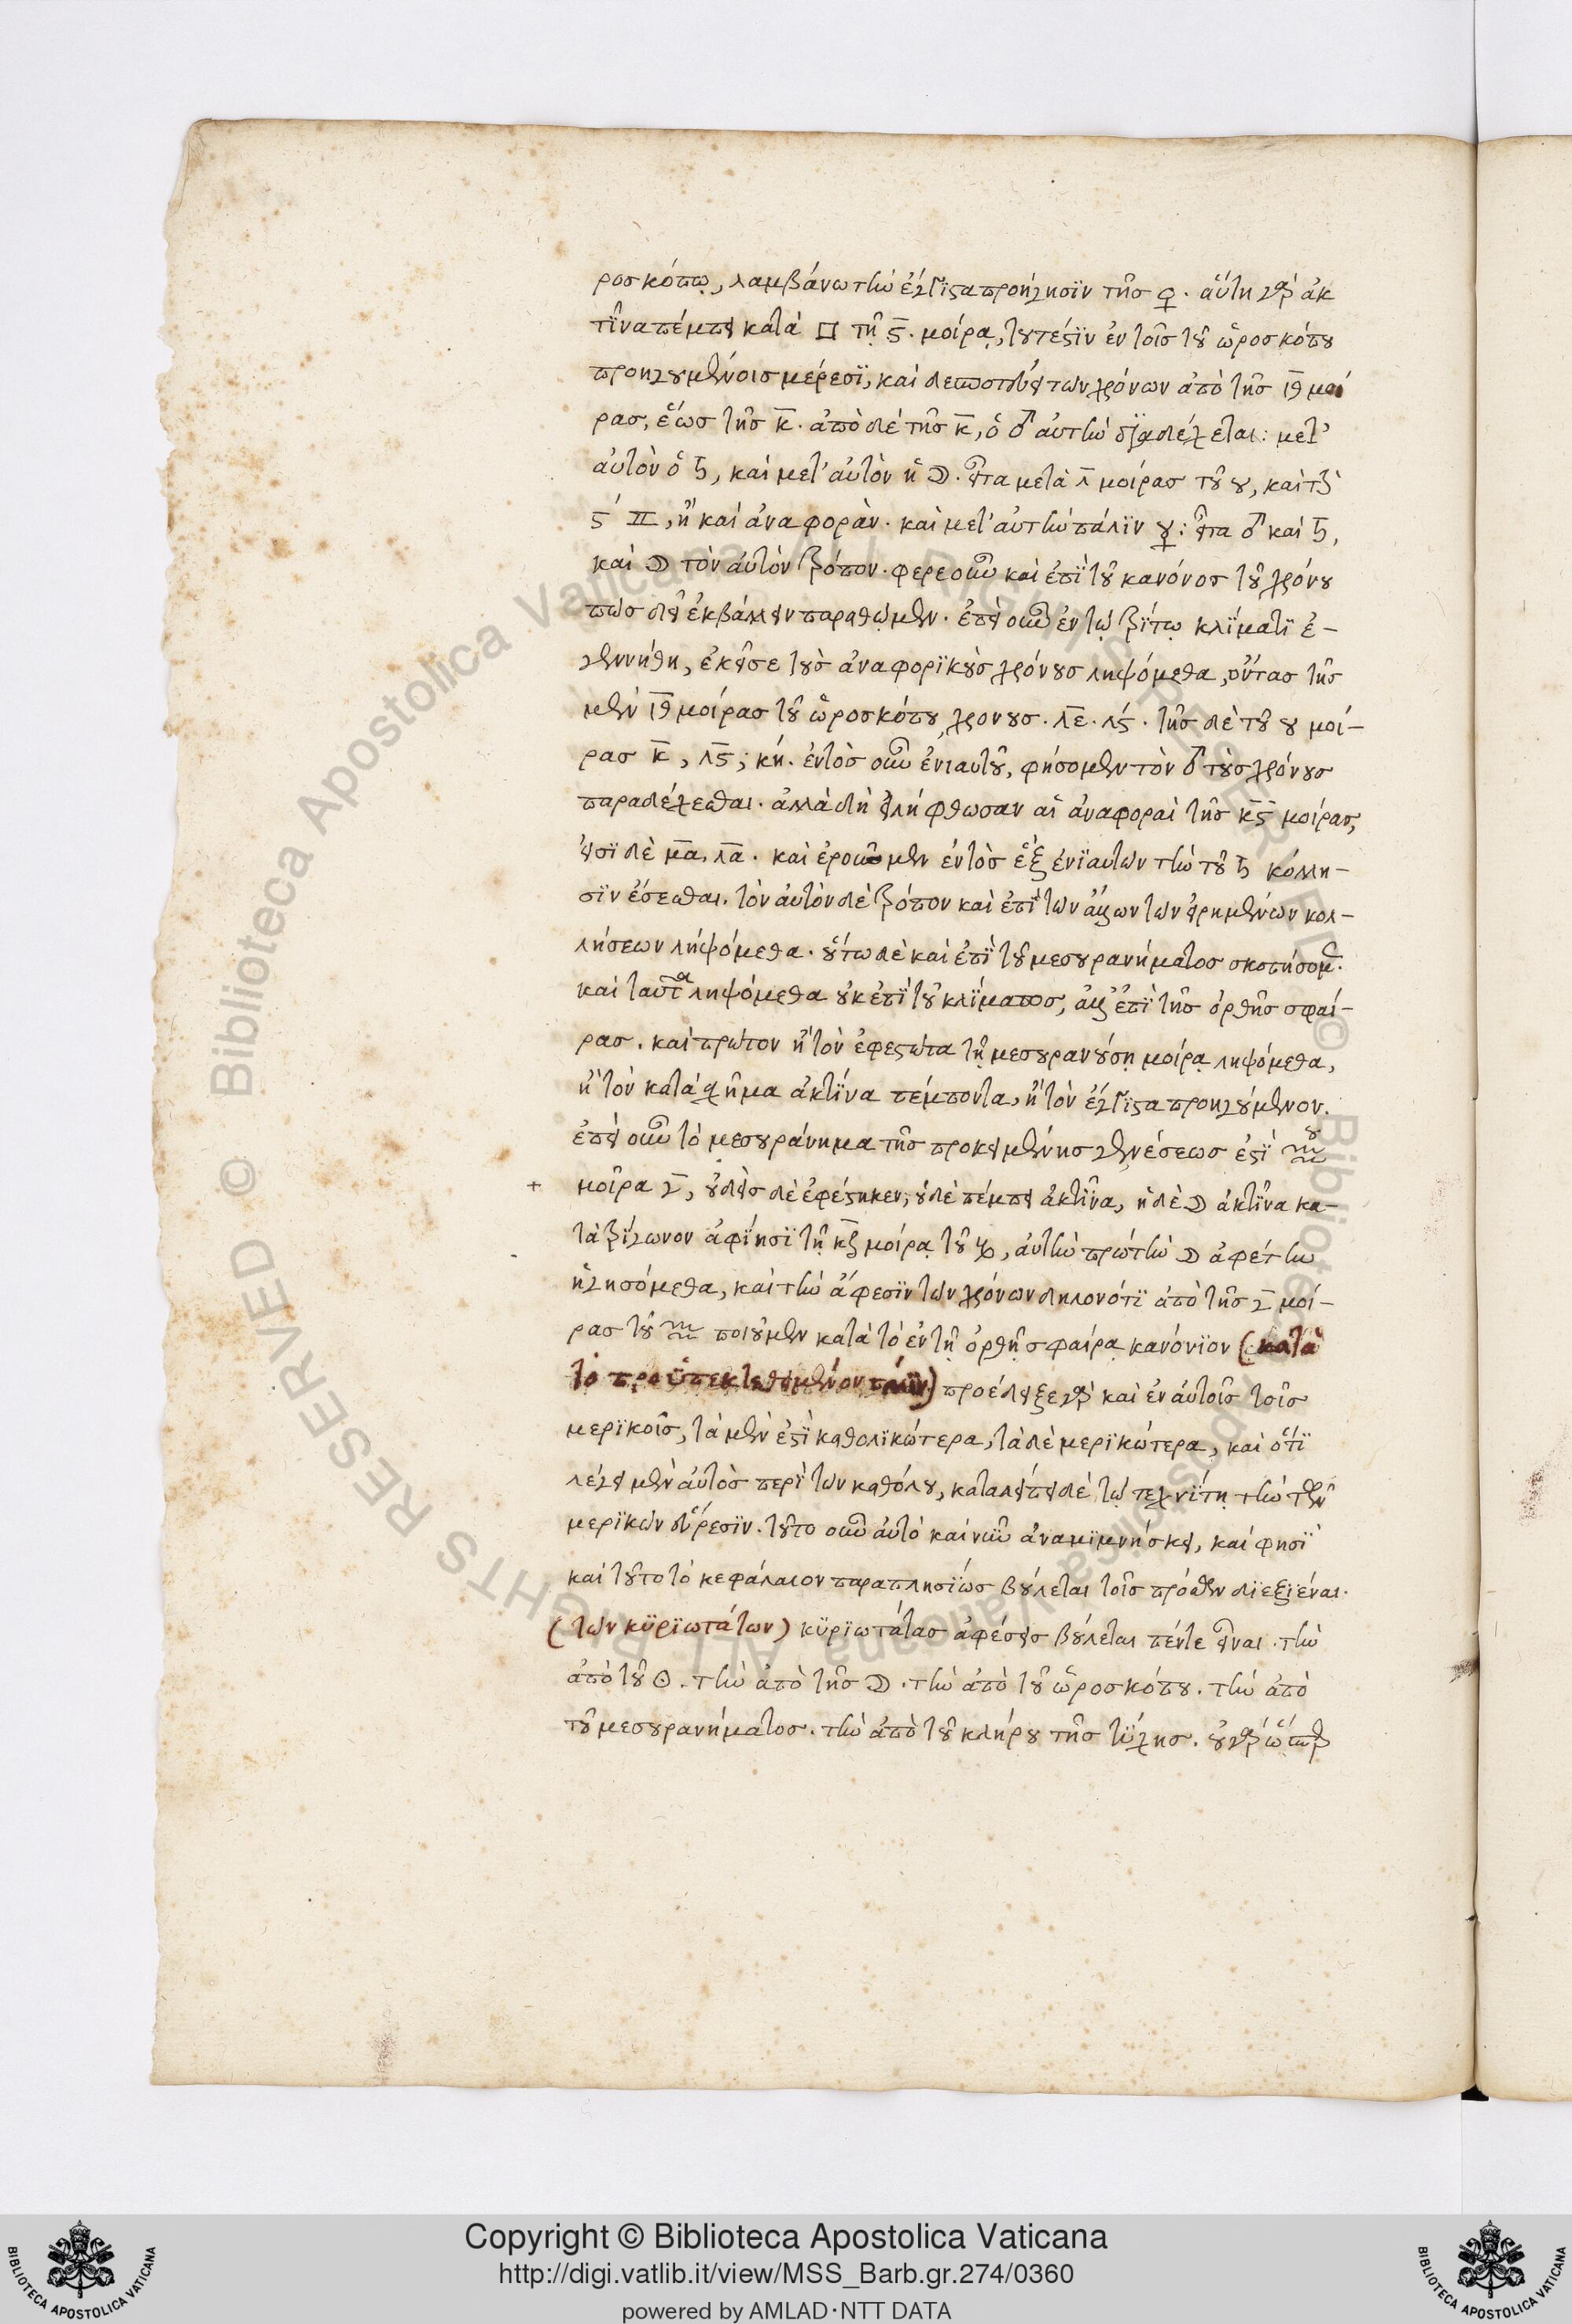 ροσκόπῳ, λαμβάνω τὴν ἔγγιστα προήγησϊν τῆς ♀. αὕτη γὰρ ἀκ
τῖνα πέμπει κατὰ □ τῇ ϛ. μοίρᾳ, τουτέστϊν ἐν τοῖς τοῦ ὡροσκόπου
προηγουμένοις μέρεσϊ, καὶ δεσποτεύει τῶν χρόνων ἀπὸ τῆς ιθ μοί
ρας, ἕως τῆς κ. ἀπὸ δὲ τῆς κ, ὁ ♂ αὐτὴν διαδέχεται: μετ'
αὐτὸν ὁ ♄, καὶ μετ' αὐτὸν ἡ ☽. εἶτα μετὰ λ μοίρας τοῦ ♉, καὶ τὰς
ϛ ♊, ἢ καὶ ἀναφοράν. καὶ μετ' αὐτὴν πάλϊν ♀: εἶτα ♂ καὶ ♄,
καὶ ☽ τὸν αὐτὸν τρόπον. φέρε οὖν καὶ ἐπὶ τοῦ κανόνος τοῦ χρόνου
πῶς δεῖ ἐκβάλλειν παραθῶμεν. ἐπεὶ οὖν ἐν τῷ τρίτῳ κλίματι ἐ-
γεννήθη, ἐκεῖσε τοὺς ἀναφορϊκοὺς χρόνους ληψόμεθα, ὄντας τῆς
μὲν ιθ μοίρας τοῦ ὡροσκόπου χρονους. λε. λϛ. τῆς δὲ τοῦ ♉ μοί-
ρας κ, λϛ; κη. ἐντὸς οὖν ἐνιαυτοῦ, φήσομεν τὸν ♂ τοὺς χρόνους
παραδέχεσθαι. ἀλλὰ δὴ εἰλήφθωσαν αἱ ἀναφοραὶ τῆς κϛ μοίρας,
εἰσὶ δὲ μα. λα. καὶ ἐροῦμεν ἐντὸς ἓξ ἐνϊαυτῶν τὴν τοῦ ♄ κόλλη-
σϊν ἔσεσθαι. τὸν αὐτὸν δὲ τρόπον καὶ ἐπὶ τῶν ἄλλων τῶν εἰρημένων κολ-
λήσεων ληψόμεθα. οὕτω δὲ καὶ ἐπὶ τοῦ μεσουρανήματος σκοπήσομεν.
καὶ ταῦτα ληψόμεθα οὐκ ἐπὶ τοῦ κλίματος, ἀλλ' ἐπὶ τῆς ὀρθῆς σφαί-
ρας. καὶ πρῶτον ἢ τὸν ἐφεστῶτα τῇ μεσουρανούσῃ μοίρᾳ ληψόμεθα,
ἢ τὸν κατὰ σχῆμα ἀκτῖνα πέμποντα, ἢ τὸν ἔγγϊστα προηγούμενον.
ἐπεὶ οὖν τὸ μεσουράνημα τῆς προκειμένης γενέσεως ἐστὶ ♒ου
+ μοῖρα γ, οὐδεὶς δὲ ἐφέστηκεν, οὐδὲ πέμπει ἀκτῖνα, ἡ δὲ ☽ ἀκτῖνα κα-
τὰ τρίγωνον ἀφίησϊ τῇ κζ μοίρᾳ τοῦ ♑, αὐτὴν πρώτην ☽ ἀφέτϊν
ἡγησόμεθα, καὶ τὴν ἄφεσϊν τῶν χρόνων δηλονότϊ ἀπὸ τῆς γ μοί-
ρας τοῦ ♒ ποιοῦμεν κατὰ τὸ ἐν τῇ ὀρθῇ σφαίρᾳ κανόνϊον (κατὰ
τὸ προϋπεκτεθειμένον) προέδειξε γὰρ καὶ ἐν αὐτοῖς τοῖς
μερϊκοῖς, τὰ μὲν ἐστὶ καθολϊκώτερα, τὰ δὲ μερϊκώτερα, καὶ ὅτϊ
λέγει μὲν αὐτὸς περὶ τῶν καθόλου, καταλείπει δὲ τῷ τεχνίτῃ τὴν τῶν
μερϊκῶν εὕρεσϊν. τοῦτο οὖν αὐτὸ καὶ νῦν ἀναμϊμνήσκει, καὶ φησὶ
καὶ τοῦτο τὸ κεφάλαιον παραπλησίως βούλεται τοῖς πρόσθεν δϊεξϊέναι.
(τῶν κϋρϊωτάτων) κϋρϊωτάτας ἀφέσεις βούλεται πέντε εἶναι. τὴν
ἀπὸ τοῦ ☉. τὴν ἀπὸ τῆς ☽. τὴν ἀπὸ τοῦ ὡροσκόπου. τὴν ἀπὸ
τοῦ μεσουρανήματος. τὴν ἀπὸ τοῦ κλήρου τῆς τύχης. οὐ γὰρ ὥσπερ
Biblioteca Apostolica Vaticana ALL RIGHTS RESERVED ©
Copyright © Biblioteca Apostolica Vaticana
http://digi.vatlib.it/view/MSS_Barb.gr.274/0360
powered by AMLAD·NTT DATA
BIBLIOTECA APOSTOLICA VATICANA
BIBLIOTECA APOSTOLICA VATICANA